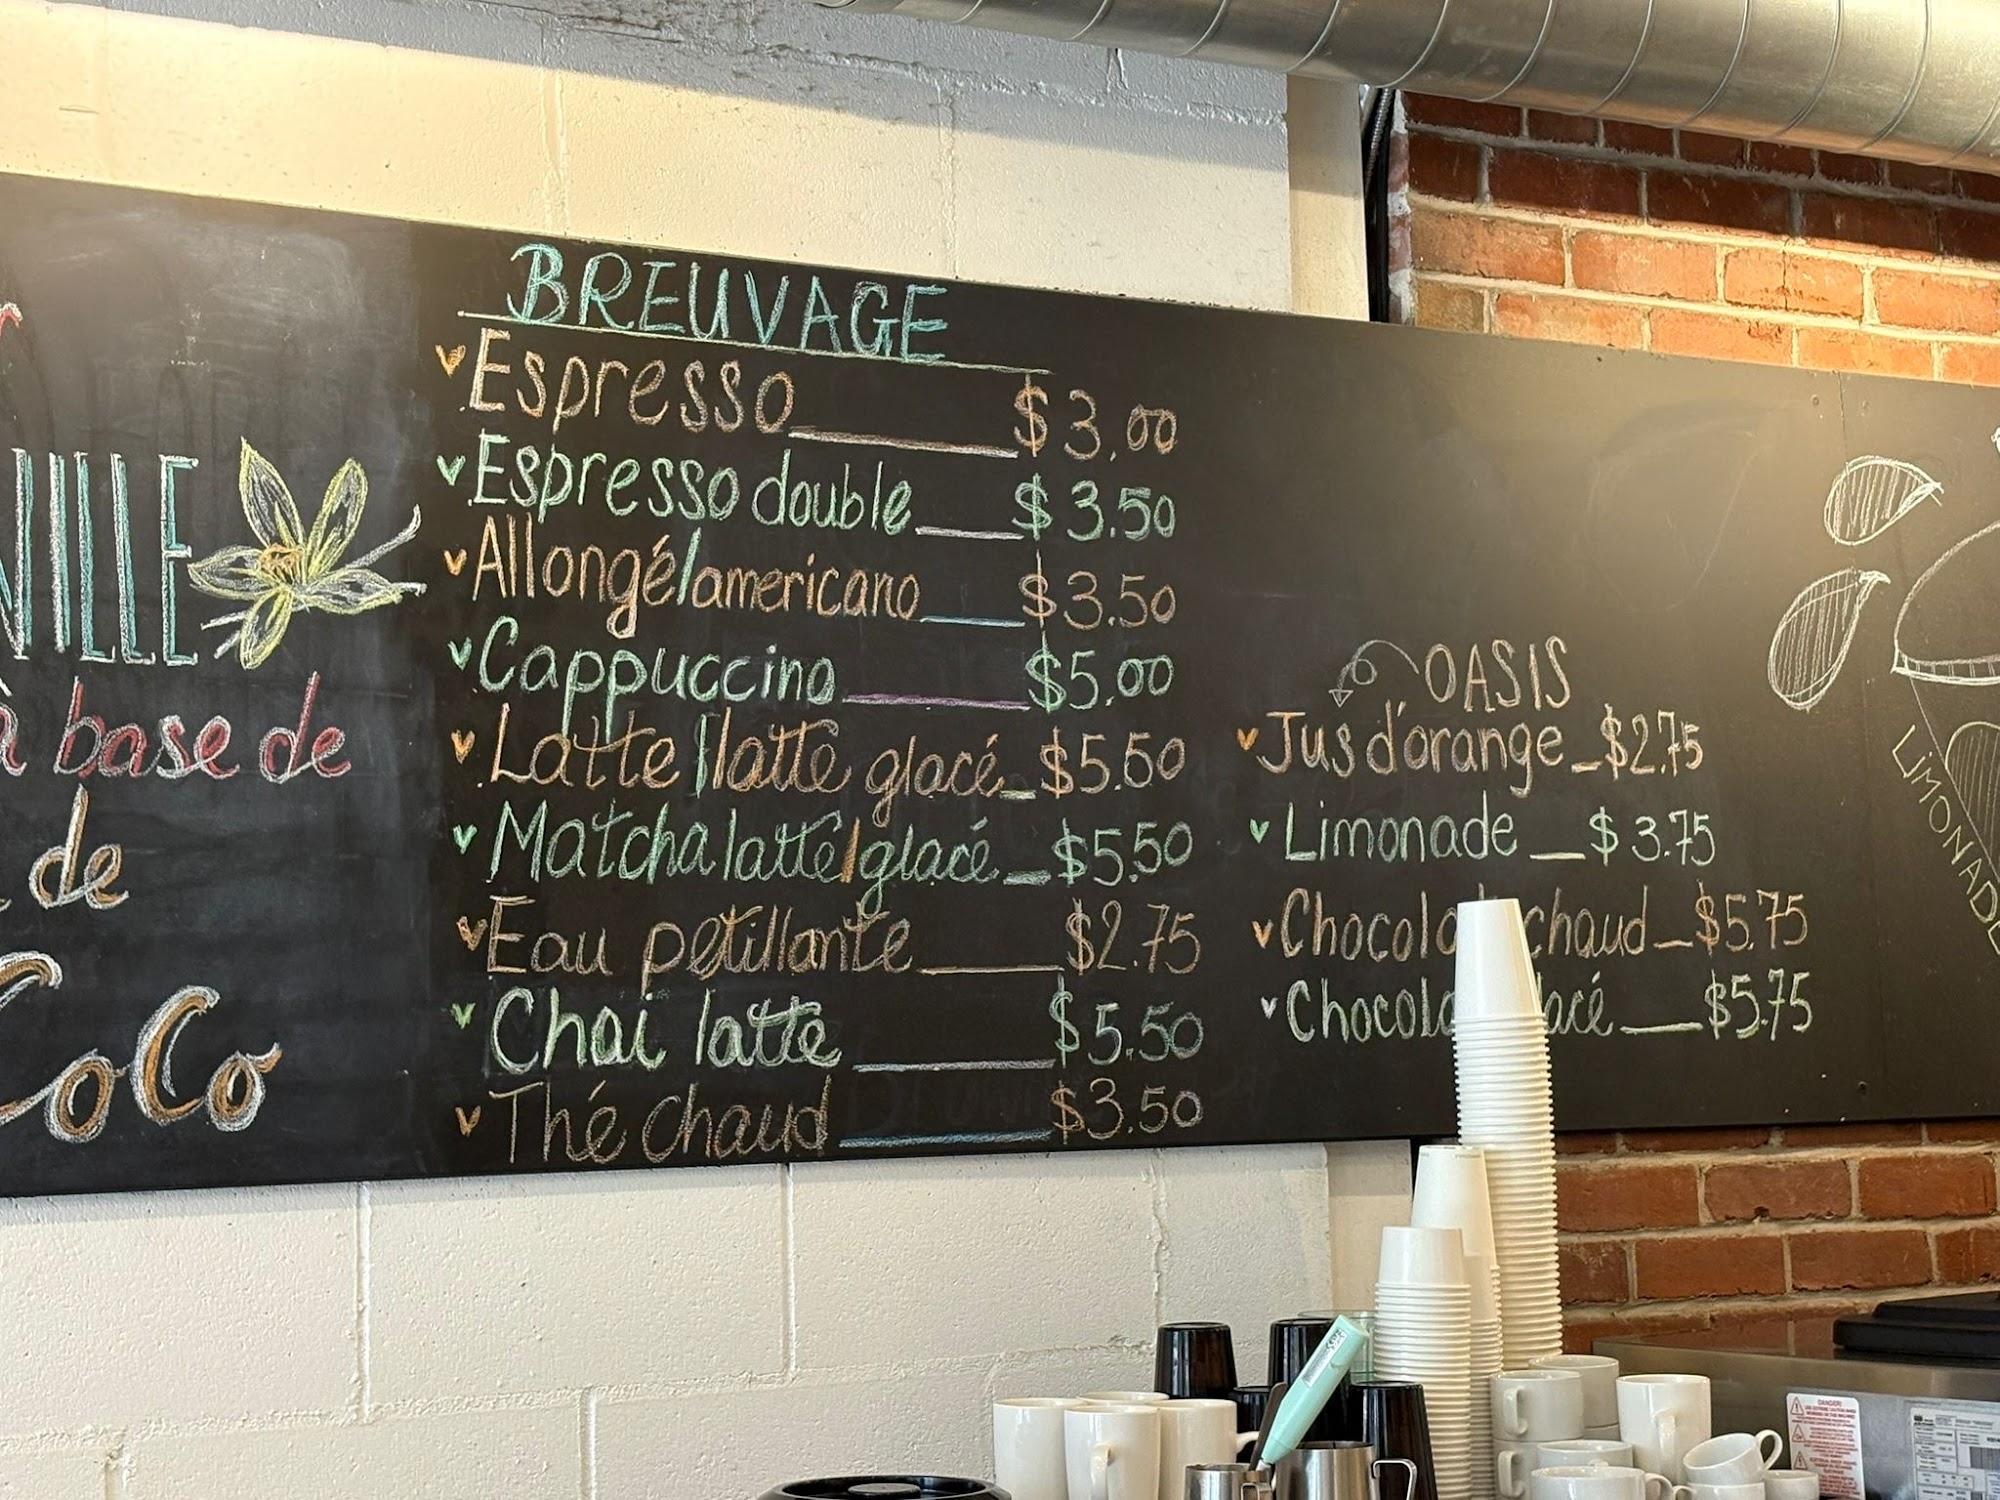 NILLE
à base de
de
CoCo
BREUVAGE
Espresso $3.00
Espresso double $3.50
Allongé/americano $3.50
Cappuccino $5.00
Latte/latte glacé $5.50
Matcha latte/glacé $5.50
Eau petillante $2.75
Chai latte $5.50
Thé chaud $3.50
OASIS
Jus d'orange $2.75
Limonade $3.75
chaud $5.75
$5.75
LiMONADE
DANGER!